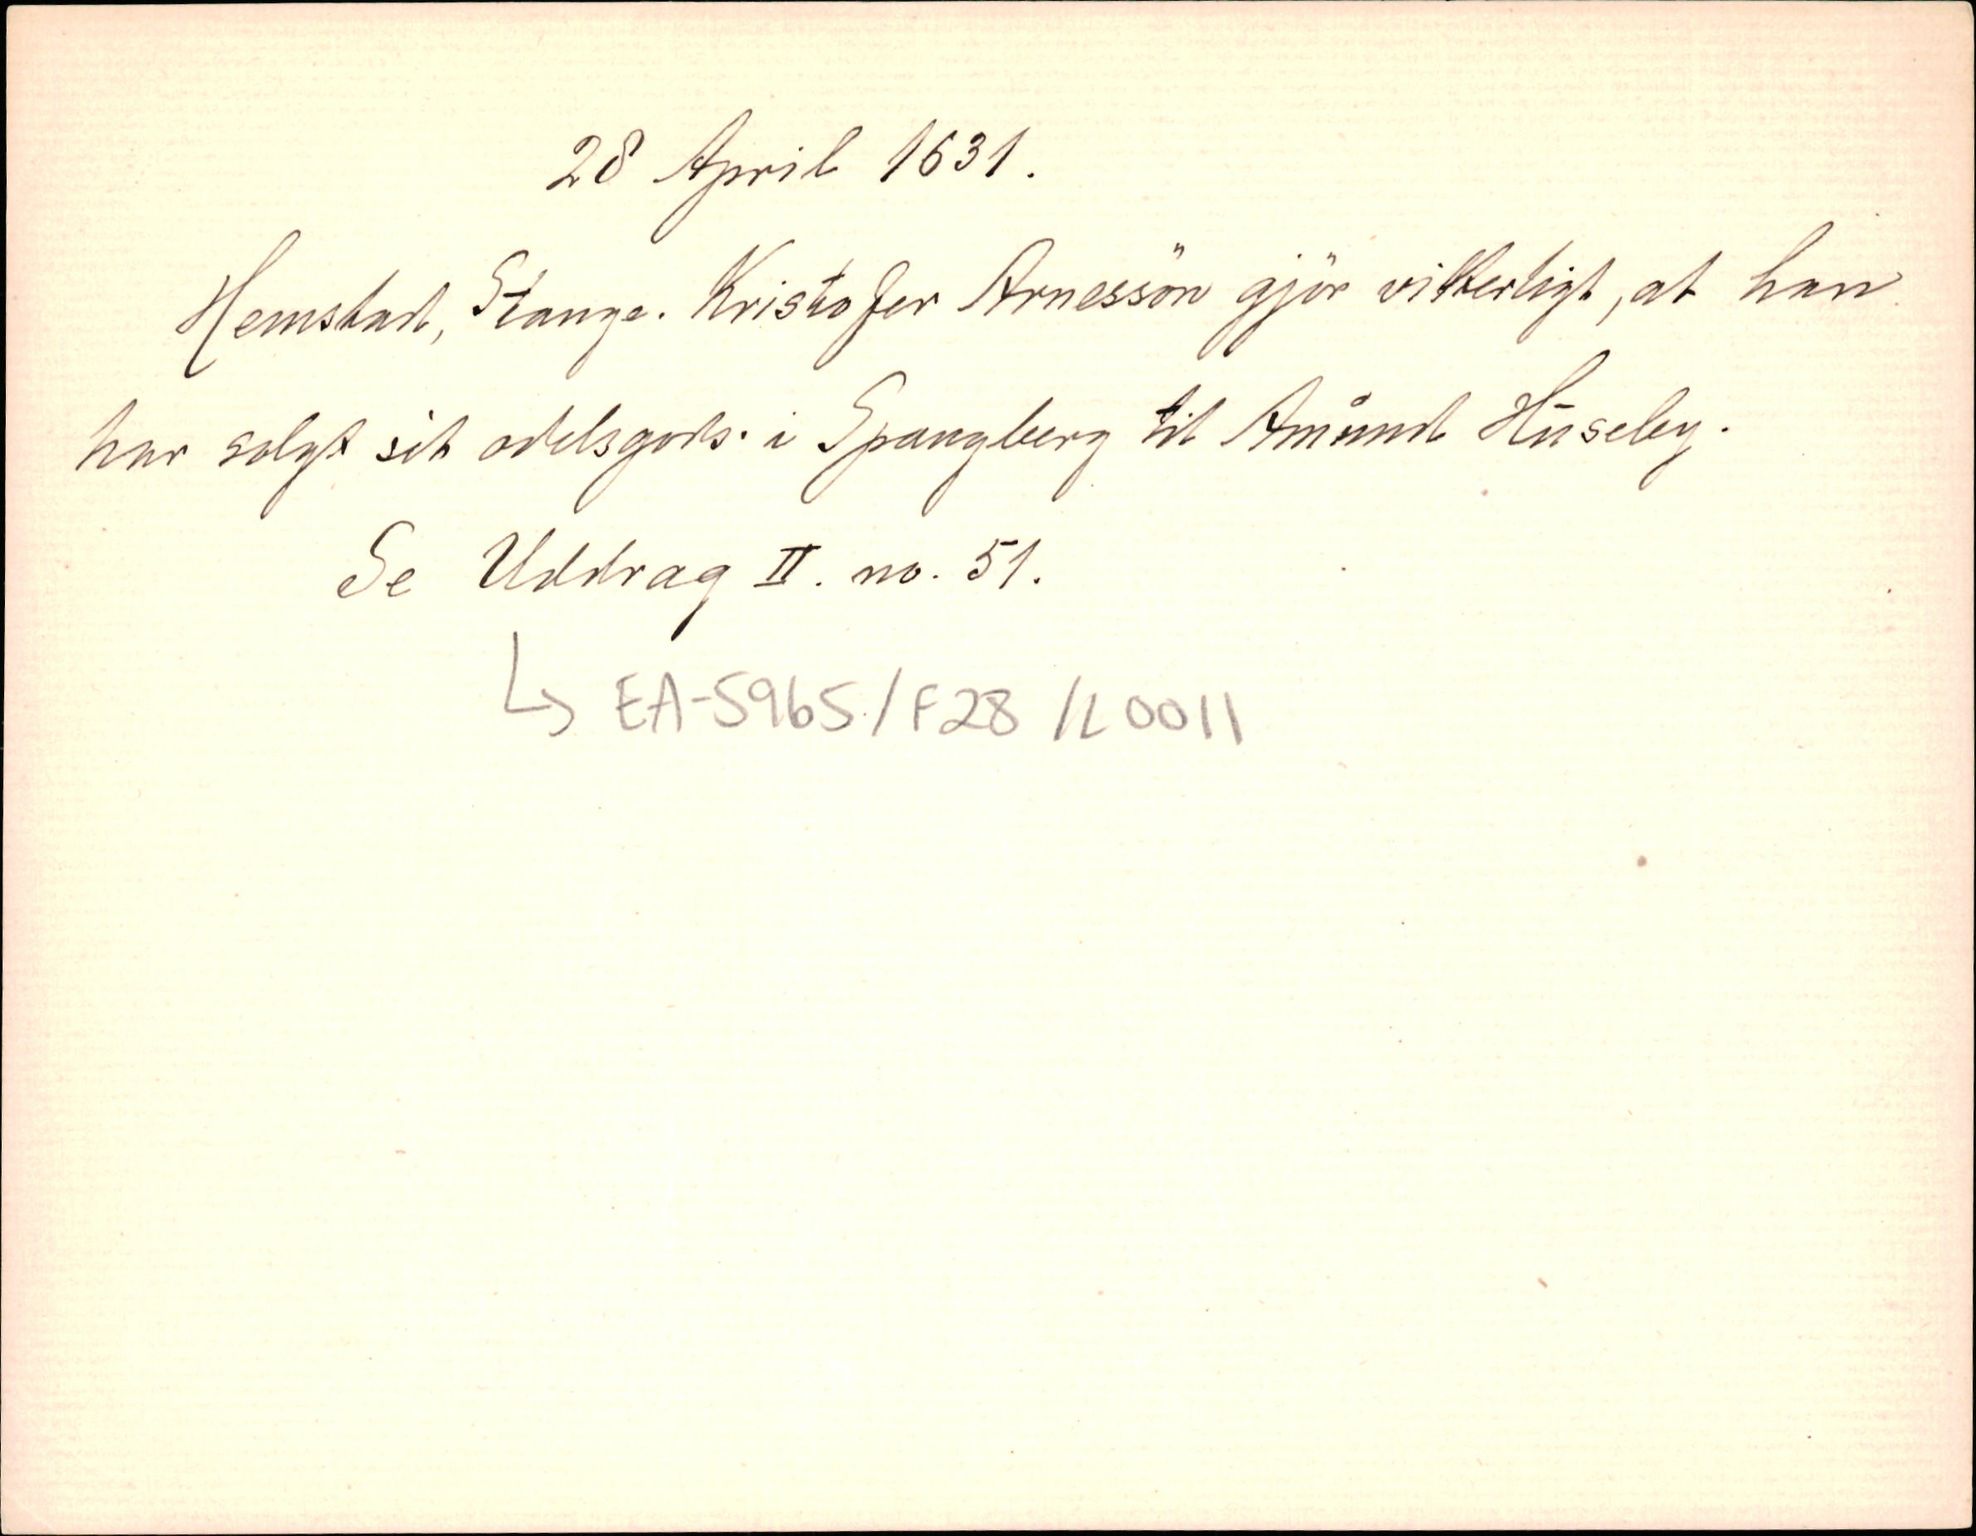 28 April 1631.
Hemstad, Stange. Kristofer Arnessön gjör vitterligt, at han
har solgt sit odelsgods i Spangberg til Amund Huseby.
Se Uddrag II. no. 51.
↳ EA-5965/F28/L0011